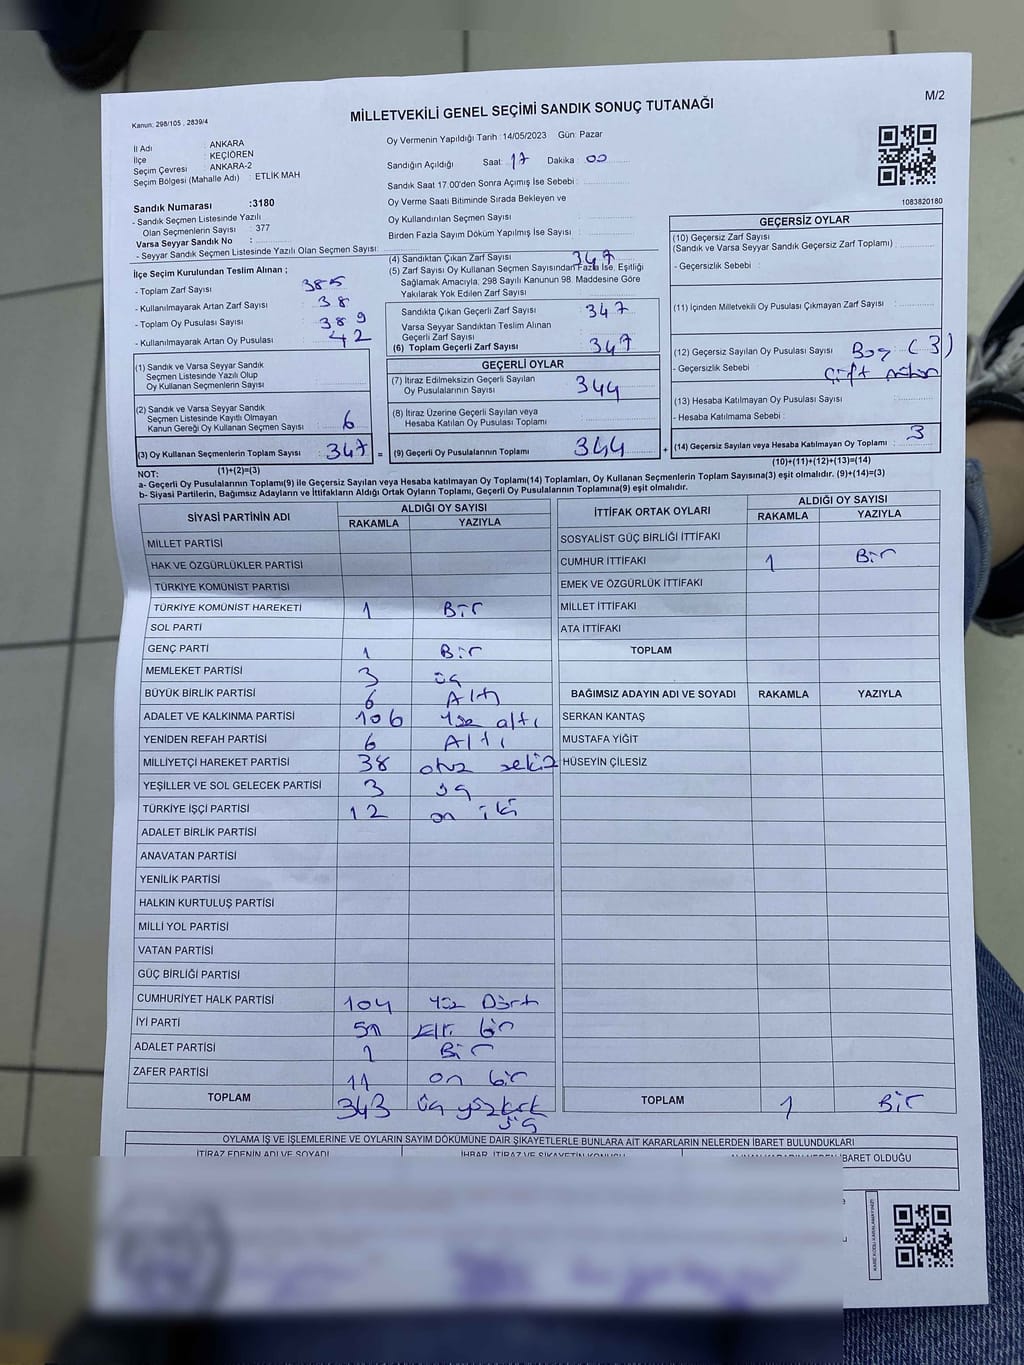 MİLLETVEKİLİ GENEL SEÇİMİ SANDIK SONUÇ TUTANAĞI
M/2
Kanun: 298/105 , 2839/4
İl Adı : ANKARA
İlçe : KEÇİÖREN
Seçim Çevresi : ANKARA-2
Seçim Bölgesi (Mahalle Adı) : ETLİK MAH
Sandık Numarası :3180
- Sandık Seçmen Listesinde Yazılı
Olan Seçmenlerin Sayısı : 377
Varsa Seyyar Sandık No :
- Seyyar Sandık Seçmen Listesinde Yazılı Olan Seçmen Sayısı:
Oy Vermenin Yapıldığı Tarih : 14/05/2023 Gün: Pazar
Sandığın Açıldığı Saat: 17 Dakika : 00
Sandık Saat 17.00'den Sonra Açımış İse Sebebi :
Oy Verme Saati Bitiminde Sırada Bekleyen ve
Oy Kullandırılan Seçmen Sayısı :
Birden Fazla Sayım Döküm Yapılmış İse Sayısı :
1083820180
İlçe Seçim Kurulundan Teslim Alınan ;
- Toplam Zarf Sayısı 385
- Kullanılmayarak Artan Zarf Sayısı : 38
- Toplam Oy Pusulası Sayısı : 389
- Kullanılmayarak Artan Oy Pusulası : 42
(1) Sandık ve Varsa Seyyar Sandık
Seçmen Listesinde Yazılı Olup
Oy Kullanan Seçmenlerin Sayısı
(2) Sandık ve Varsa Seyyar Sandık
Seçmen Listesinde Kayıtlı Olmayan
Kanun Gereği Oy Kullanan Seçmen Sayısı 6
(3) Oy Kullanan Seçmenlerin Toplam Sayısı 347 =
(1)+(2)=(3)
(4) Sandıktan Çıkan Zarf Sayısı 347
(5) Zarf Sayısı Oy Kullanan Seçmen Sayısından Fazla İse, Eşitliği
Sağlamak Amacıyla, 298 Sayılı Kanunun 98. Maddesine Göre
Yakılarak Yok Edilen Zarf Sayısı
Sandıkta Çıkan Geçerli Zarf Sayısı 347
Varsa Seyyar Sandıktan Teslim Alınan
Geçerli Zarf Sayısı
(6) Toplam Geçerli Zarf Sayısı 347
GEÇERLİ OYLAR
(7) İtiraz Edilmeksizin Geçerli Sayılan
Oy Pusulası Sayısı 344
(8) İtiraz Üzerine Geçerli Sayılan veya
Hesaba Katılan Oy Pusulası Toplamı
(9) Geçerli Oy Pusulalarının Toplamı 344 +
GEÇERSİZ OYLAR
(10) Geçersiz Zarf Sayısı
(Sandık ve Varsa Seyyar Sandık Geçersiz Zarf Toplamı) :
- Geçersizlik Sebebi :
(11) İçinden Milletvekili Oy Pusulası Çıkmayan Zarf Sayısı :
(12) Geçersiz Sayılan Oy Pusulası Sayısı : Boş (3)
- Geçersizlik Sebebi : Çift
(13) Hesaba Katılmayan Oy Pusulası Sayısı :
- Hesaba Katılmama Sebebi :
(14) Geçersiz Sayılan veya Hesaba Katılmayan Oy Toplamı : 3
(10)+(11)+(12)+(13)=(14)
NOT:
a- Geçerli Oy Pusulalarının Toplamı(9) ile Geçersiz Sayılan veya Hesaba katılmayan Oy Toplamı(14) Toplamları, Oy Kullanan Seçmenlerin Toplam Sayısına(3) eşit olmalıdır. (9)+(14)=(3)
b- Siyasi Partilerin, Bağımsız Adayların ve İttifakların Aldığı Ortak Oyların Toplamı, Geçerli Oy Pusulalarının Toplamına(9) eşit olmalıdır.
SİYASİ PARTİNİN ADI ALDIĞI OY SAYISI
RAKAMLA YAZIYLA
MİLLET PARTİSİ
HAK VE ÖZGÜRLÜKLER PARTİSİ
TÜRKİYE KOMÜNİST PARTİSİ
TÜRKİYE KOMÜNİST HAREKETİ 1 Bir
SOL PARTİ
GENÇ PARTİ 1 Bir
MEMLEKET PARTİSİ 3 üç
BÜYÜK BİRLİK PARTİSİ 6 Altı
ADALET VE KALKINMA PARTİSİ 106 Yüz altı
YENİDEN REFAH PARTİSİ 6 Altı
MİLLİYETÇİ HAREKET PARTİSİ 38 otuz sekiz
YEŞİLLER VE SOL GELECEK PARTİSİ 3 üç
TÜRKİYE İŞÇİ PARTİSİ 12 on iki
ADALET BİRLİK PARTİSİ
ANAVATAN PARTİSİ
YENİLİK PARTİSİ
HALKIN KURTULUŞ PARTİSİ
MİLLİ YOL PARTİSİ
VATAN PARTİSİ
GÜÇ BİRLİĞİ PARTİSİ
CUMHURİYET HALK PARTİSİ 104 Yüz Dört
İYİ PARTİ 51 Elli bir
ADALET PARTİSİ 1 Bir
ZAFER PARTİSİ 11 on bir
TOPLAM 343 üç yüz kırk
üç
İTTİFAK ORTAK OYLARI ALDIĞI OY SAYISI
RAKAMLA YAZIYLA
SOSYALİST GÜÇ BİRLİĞİ İTTİFAKI
CUMHUR İTTİFAKI 1 Bir
EMEK VE ÖZGÜRLÜK İTTİFAKI
MİLLET İTTİFAKI
ATA İTTİFAKI
TOPLAM
BAĞIMSIZ ADAYIN ADI VE SOYADI RAKAMLA YAZIYLA
SERKAN KANTAŞ
MUSTAFA YİĞİT
HÜSEYİN ÇİLESİZ
TOPLAM 1 Bir
OYLAMA İŞ VE İŞLEMLERİNE VE OYLARIN SAYIM DÖKÜMÜNE DAİR ŞİKAYETLERLE BUNLARA AİT KARARLARIN NELERDEN İBARET BULUNDUKLARI
İTİRAZ EDENİN ADI VE SOYADI İHBAR, İTİRAZ VE ŞİKAYETİN KONUSU İBARET OLDUĞU